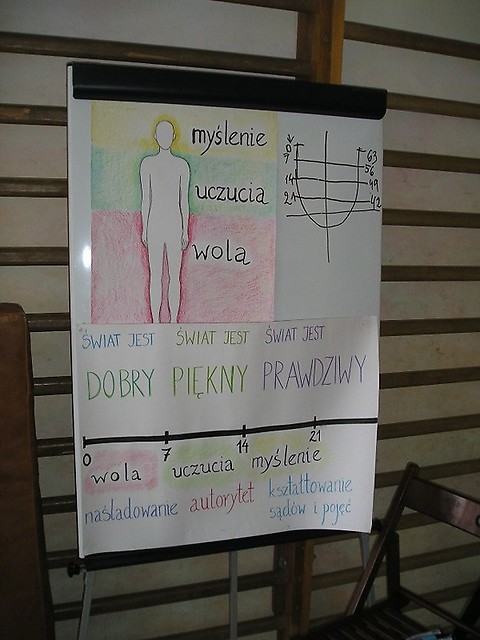 myślenie
uczucia
wola
0
7
14
21
63
56
49
42
ŚWIAT JEST ŚWIAT JEST ŚWIAT JEST
DOBRY PIĘKNY PRAWDZIWY
0 7 14 21
wola uczucia myślenie
naśladowanie autorytet kształtowanie
sądów i pojęć